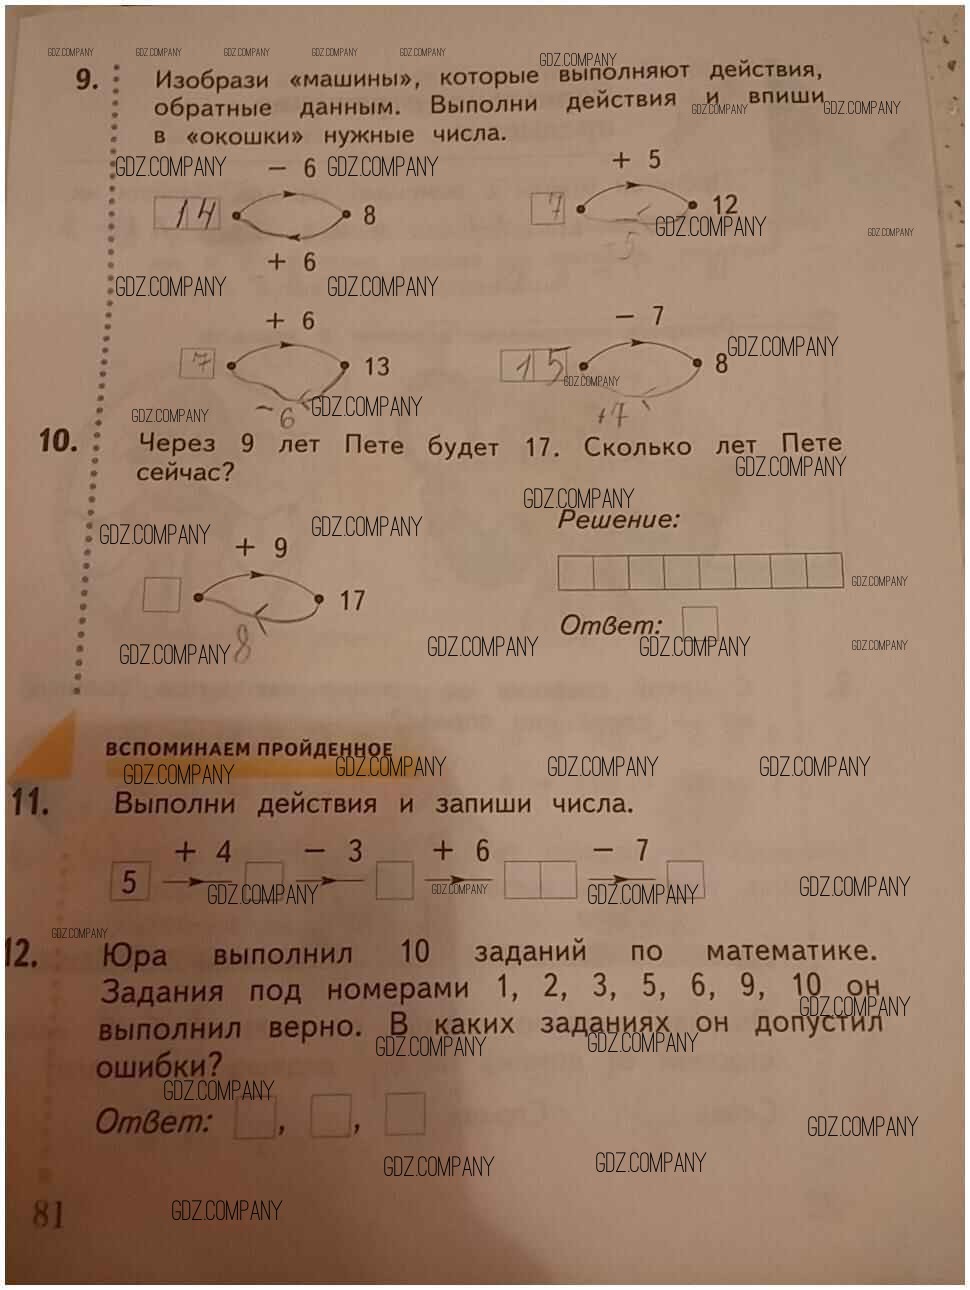 GDZ.COMPANY GDZ.COMPANY GDZ.COMPANY GDZ.COMPANY GDZ.COMPANY GDZ.COMPANY
9. Изобрази «машины», которые выполняют действия,
обратные данным. Выполни действия и впиши
GDZ.COMPANY GDZ.COMPANY
в «окошки» нужные числа.
GDZ.COMPANY - 6 GDZ.COMPANY + 5
14 8 7 12
GDZ.COMPANY GDZ.COMPANY
-5
+ 6
GDZ.COMPANY GDZ.COMPANY
+ 6 - 7
GDZ.COMPANY
7 13 15 8
GDZ.COMPANY
GDZ.COMPANY -6 GDZ.COMPANY +7
10. Через 9 лет Пете будет 17. Сколько лет Пете
сейчас?
GDZ.COMPANY
GDZ.COMPANY
Решение:
GDZ.COMPANY GDZ.COMPANY
+ 9
GDZ.COMPANY
17
Ответ:
8
GDZ.COMPANY GDZ.COMPANY GDZ.COMPANY GDZ.COMPANY
ВСПОМИНАЕМ ПРОЙДЕННОЕ
GDZ.COMPANY GDZ.COMPANY GDZ.COMPANY GDZ.COMPANY
11. Выполни действия и запиши числа.
+ 4 - 3 + 6 - 7
5
GDZ.COMPANY GDZ.COMPANY GDZ.COMPANY GDZ.COMPANY
GDZ.COMPANY
12. Юра выполнил 10 заданий по математике.
Задания под номерами 1, 2, 3, 5, 6, 9, 10 он
GDZ.COMPANY
выполнил верно. В каких заданиях он допустил
GDZ.COMPANY GDZ.COMPANY
ошибки?
GDZ.COMPANY
Ответ: , ,
GDZ.COMPANY
GDZ.COMPANY GDZ.COMPANY
81 GDZ.COMPANY